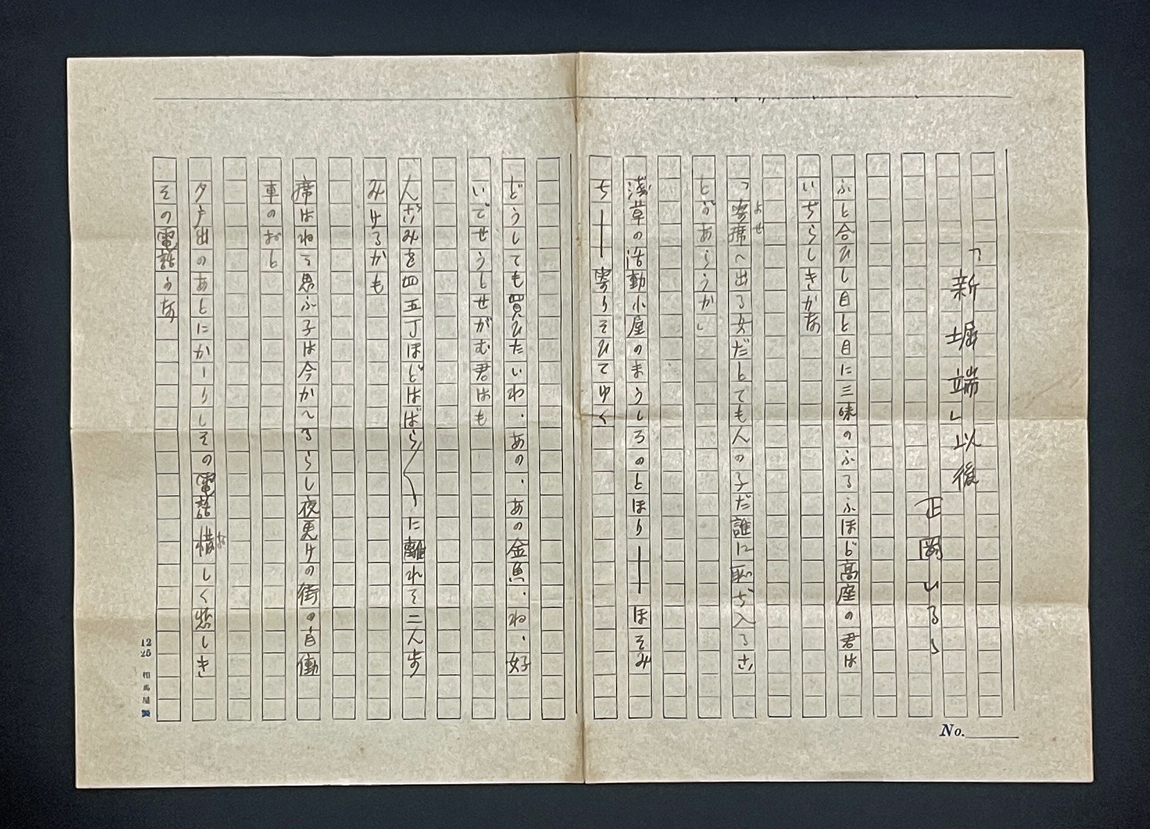 「新堀端」以後
正岡いるゝ
ふと合ひし目と目に三味のふるふほど高座の君は
いぢらしきかな
「寄席へ出る女だとても人の子だ誰に恥ぢ入るこ
よせ
とがあらうか」
浅草の活動小屋のまうしろのとほり――ほそみ
ち――寄りそひてゆく
どうしても買ひたいわ、あの、あの金魚、ね、好
いでせうとせがむ君はも
人ごみを四五丁ほどはばら〱に離れて二人歩
みけるかも
席はねて思ふ子は今かへるらし夜更けの街の自働
車のおと
夕戸出のあとにかゝりしその電話惜しく悲しき
を
その電話かな
No.
12
25
相馬屋製